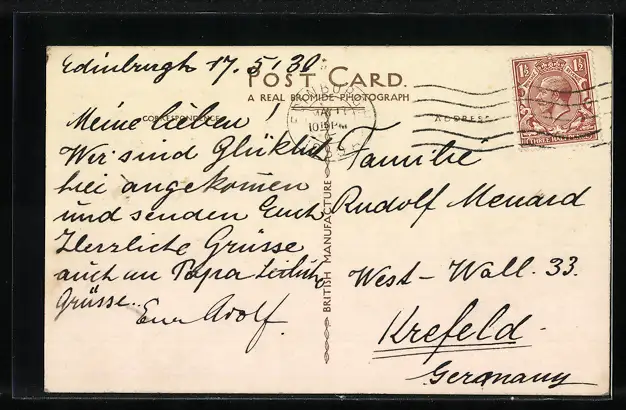 Edinburgh 17.5.30.
POST CARD.
A REAL BROMIDE PHOTOGRAPH
CORRESPONDENCE
ADDRESS
Meine lieben!
Wir sind Glüklich
hier angekomen
und senden Euch
Herzliche Grüsse
auch an Papa
Grüsse..
Euer Adolf.
BRITISH MANUFACTURE
EDINBURGH
10 15 PM
Familie
Rudolf Menard
West-Wall. 33.
Krefeld.
Germany
1½ 1½
THREE HALFPENCE